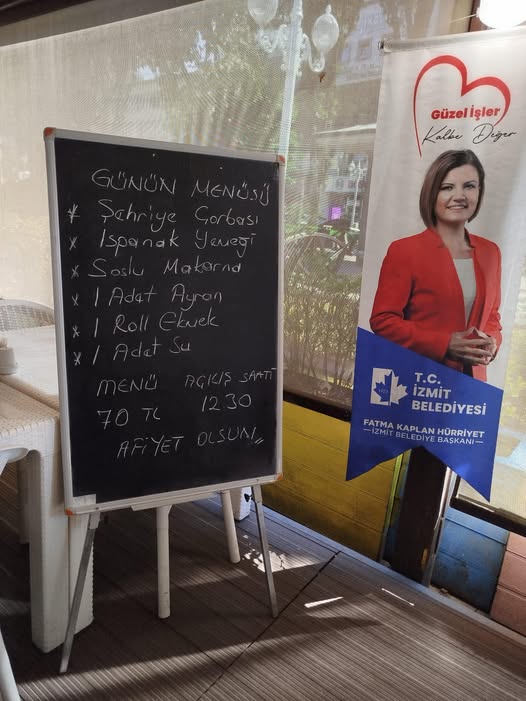 GÜNÜN MENÜSÜ
* Şahriye Çorbası
* Ispanak Yemeği
* Soslu Makarna
* 1 Adat Ayran
* 1 Roll Ekmek
* 1 Adat Su
MENÜ AÇILIŞ SAATİ
70 TL 12.30
AFİYET OLSUN!
Güzel İşler
Kalbe Değer
T.C.
İZMİT
BELEDİYESİ
FATMA KAPLAN HÜRRİYET
İZMİT BELEDİYE BAŞKANI